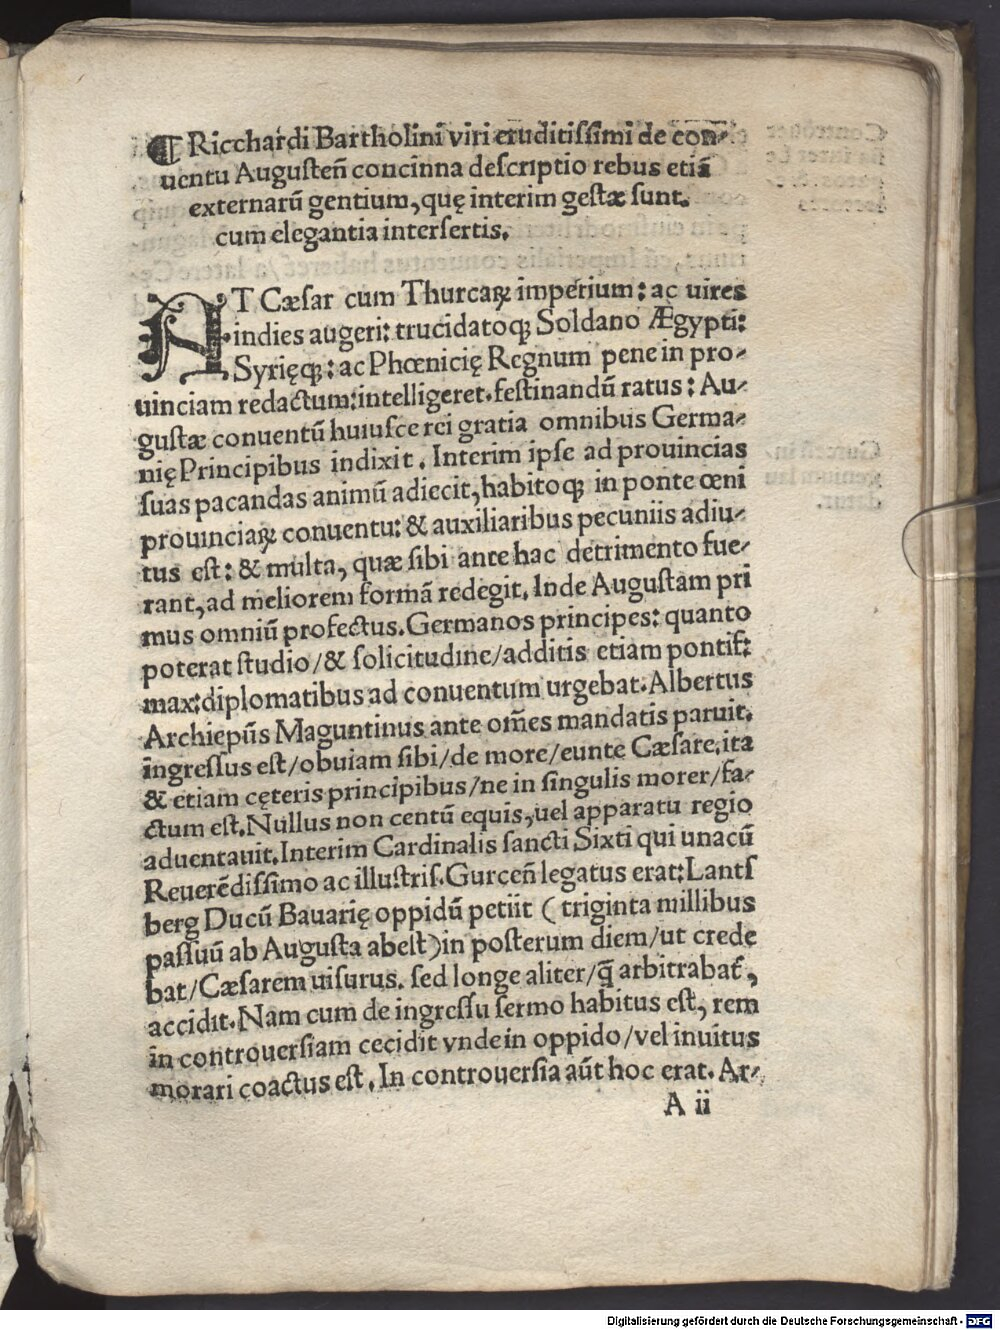 ¶ Ricchardi Bartholini viri eruditissimi de con⸗
uentu Augusteñ concinna descriptio rebus etiã
externarũ gentium, quę interim gestæ sunt.
cum elegantia insertis.
AT Cæsar cum Thurcaꝝ imperium: ac uires
indies augeri: trucidatoqꝫ Soldano Ægypti:
Syrięqꝫ: ac Phœnicię Regnum pene in pro⸗
uinciam redactum: intelligeret. festinandũ ratus: Au⸗
gustæ conuentũ huiusce rei gratia omnibus Germa⸗
nię Principibus indixit. Interim ipse ad prouincias
suas pacandas animũ adiecit, habitoqꝫ in ponte œni
prouinciaꝝ conuentu: & auxiliaribus pecuniis adiu⸗
tus est: & multa, quæ sibi ante hac detrimento fue⸗
rant, ad meliorem formã redegit. Inde Augustam pri
mus omniũ profectus. Germanos principes: quanto
poterat studio/& solicitudine/additis etiam pontif:
max: diplomatibus ad conuentum urgebat. Albertus
Archiepũs Maguntinus ante om̃es mandatis paruit.
ingressus est/obuiam sibi/de more/eunte Cæsare. ita
& etiam cęteris principibus/ne in singulis morer/fa⸗
ctum est. Nullus non centũ equis, uel apparatu regio
aduentauit. Interim Cardinalis sancti Sixti qui unacũ
Reuerẽdissimo ac illustris. Gurceñ legatus erat: Lants
berg Ducũ Bauarię oppidũ petiit (triginta millibus
passuũ ab Augusta abest) in posterum diem/ut crede
bat/Cæsarem uisurus. sed longe aliter/q̃ arbitrabat̃,
accidit. Nam cum de ingressu sermo habitus est, rem
in controuersiam cecidit vnde in oppido/vel inuitus
morari coactus est. In controuersia aũt hoc erat. Ar⸗
A ii
Digitalisierung gefördert durch die Deutsche Forschungsgemeinschaft - DFG